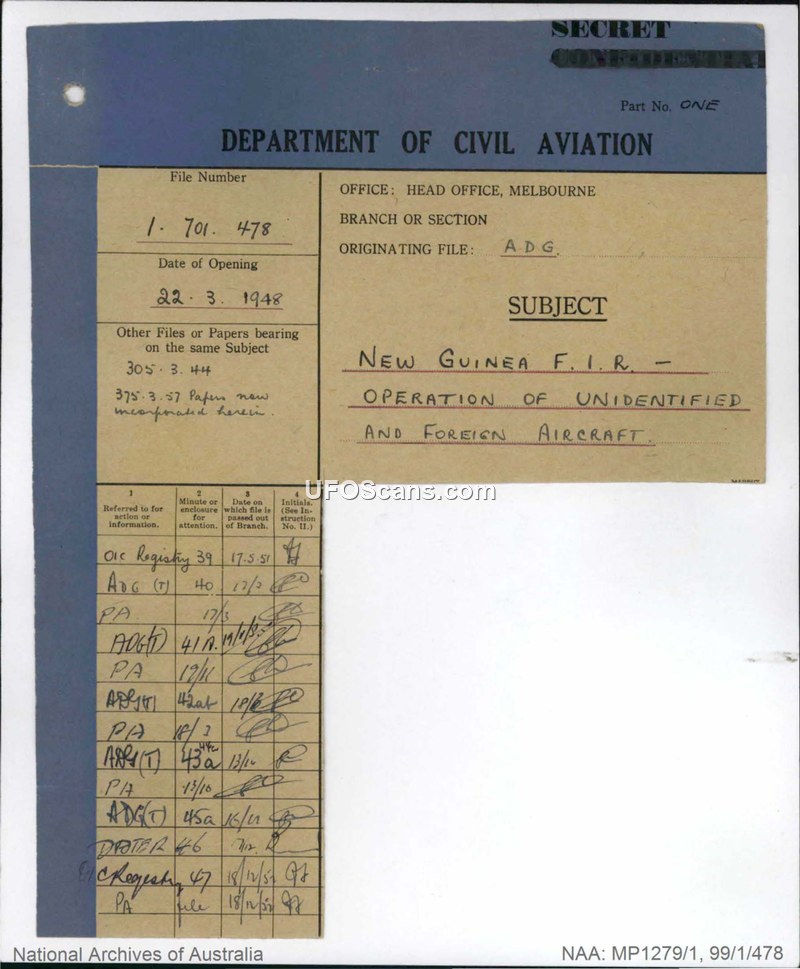 SECRET
CONFIDENTIAL
Part No. ONE
DEPARTMENT OF CIVIL AVIATION
File Number
1. 701. 478
Date of Opening
22. 3. 1948
Other Files or Papers bearing
on the same Subject
305. 3. 44
375. 3. 57 Papers now
incorporated herein.
OFFICE: HEAD OFFICE, MELBOURNE
BRANCH OR SECTION
ORIGINATING FILE: ADG.
SUBJECT
NEW GUINEA F.I.R. –
OPERATION OF UNIDENTIFIED
AND FOREIGN AIRCRAFT.
UFOScans.com
1 2 3 4
Referred to for action or information. Minute or enclosure for attention. Date on which file is passed out of Branch. Initials. (See Instruction No. 11.)
OIC Registry 39 17.5.51
ADG (T) 40
PA 17/3
ADG(T) 41A
PA 19/11
42ab 18/
PA 18/3
(T) 43a 13/10
PA 13/10
ADG(T) 45a 16/11
46 7/12
OIC Registry 47 18/12/52
PA file 18/12/52
National Archives of Australia
NAA: MP1279/1, 99/1/478